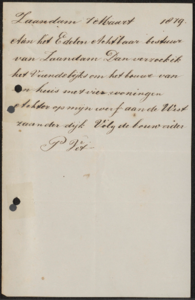 Zaandam 1 Maart 1879
Aan het Edelen Achtbaar bestuur
van Zaandam Dan verzoek ik
het Vriendelijks om het bouwe van
een huis met vier woningen
Achter op myn werf aan de West
zaander dyk Volg de bouw
P Vet